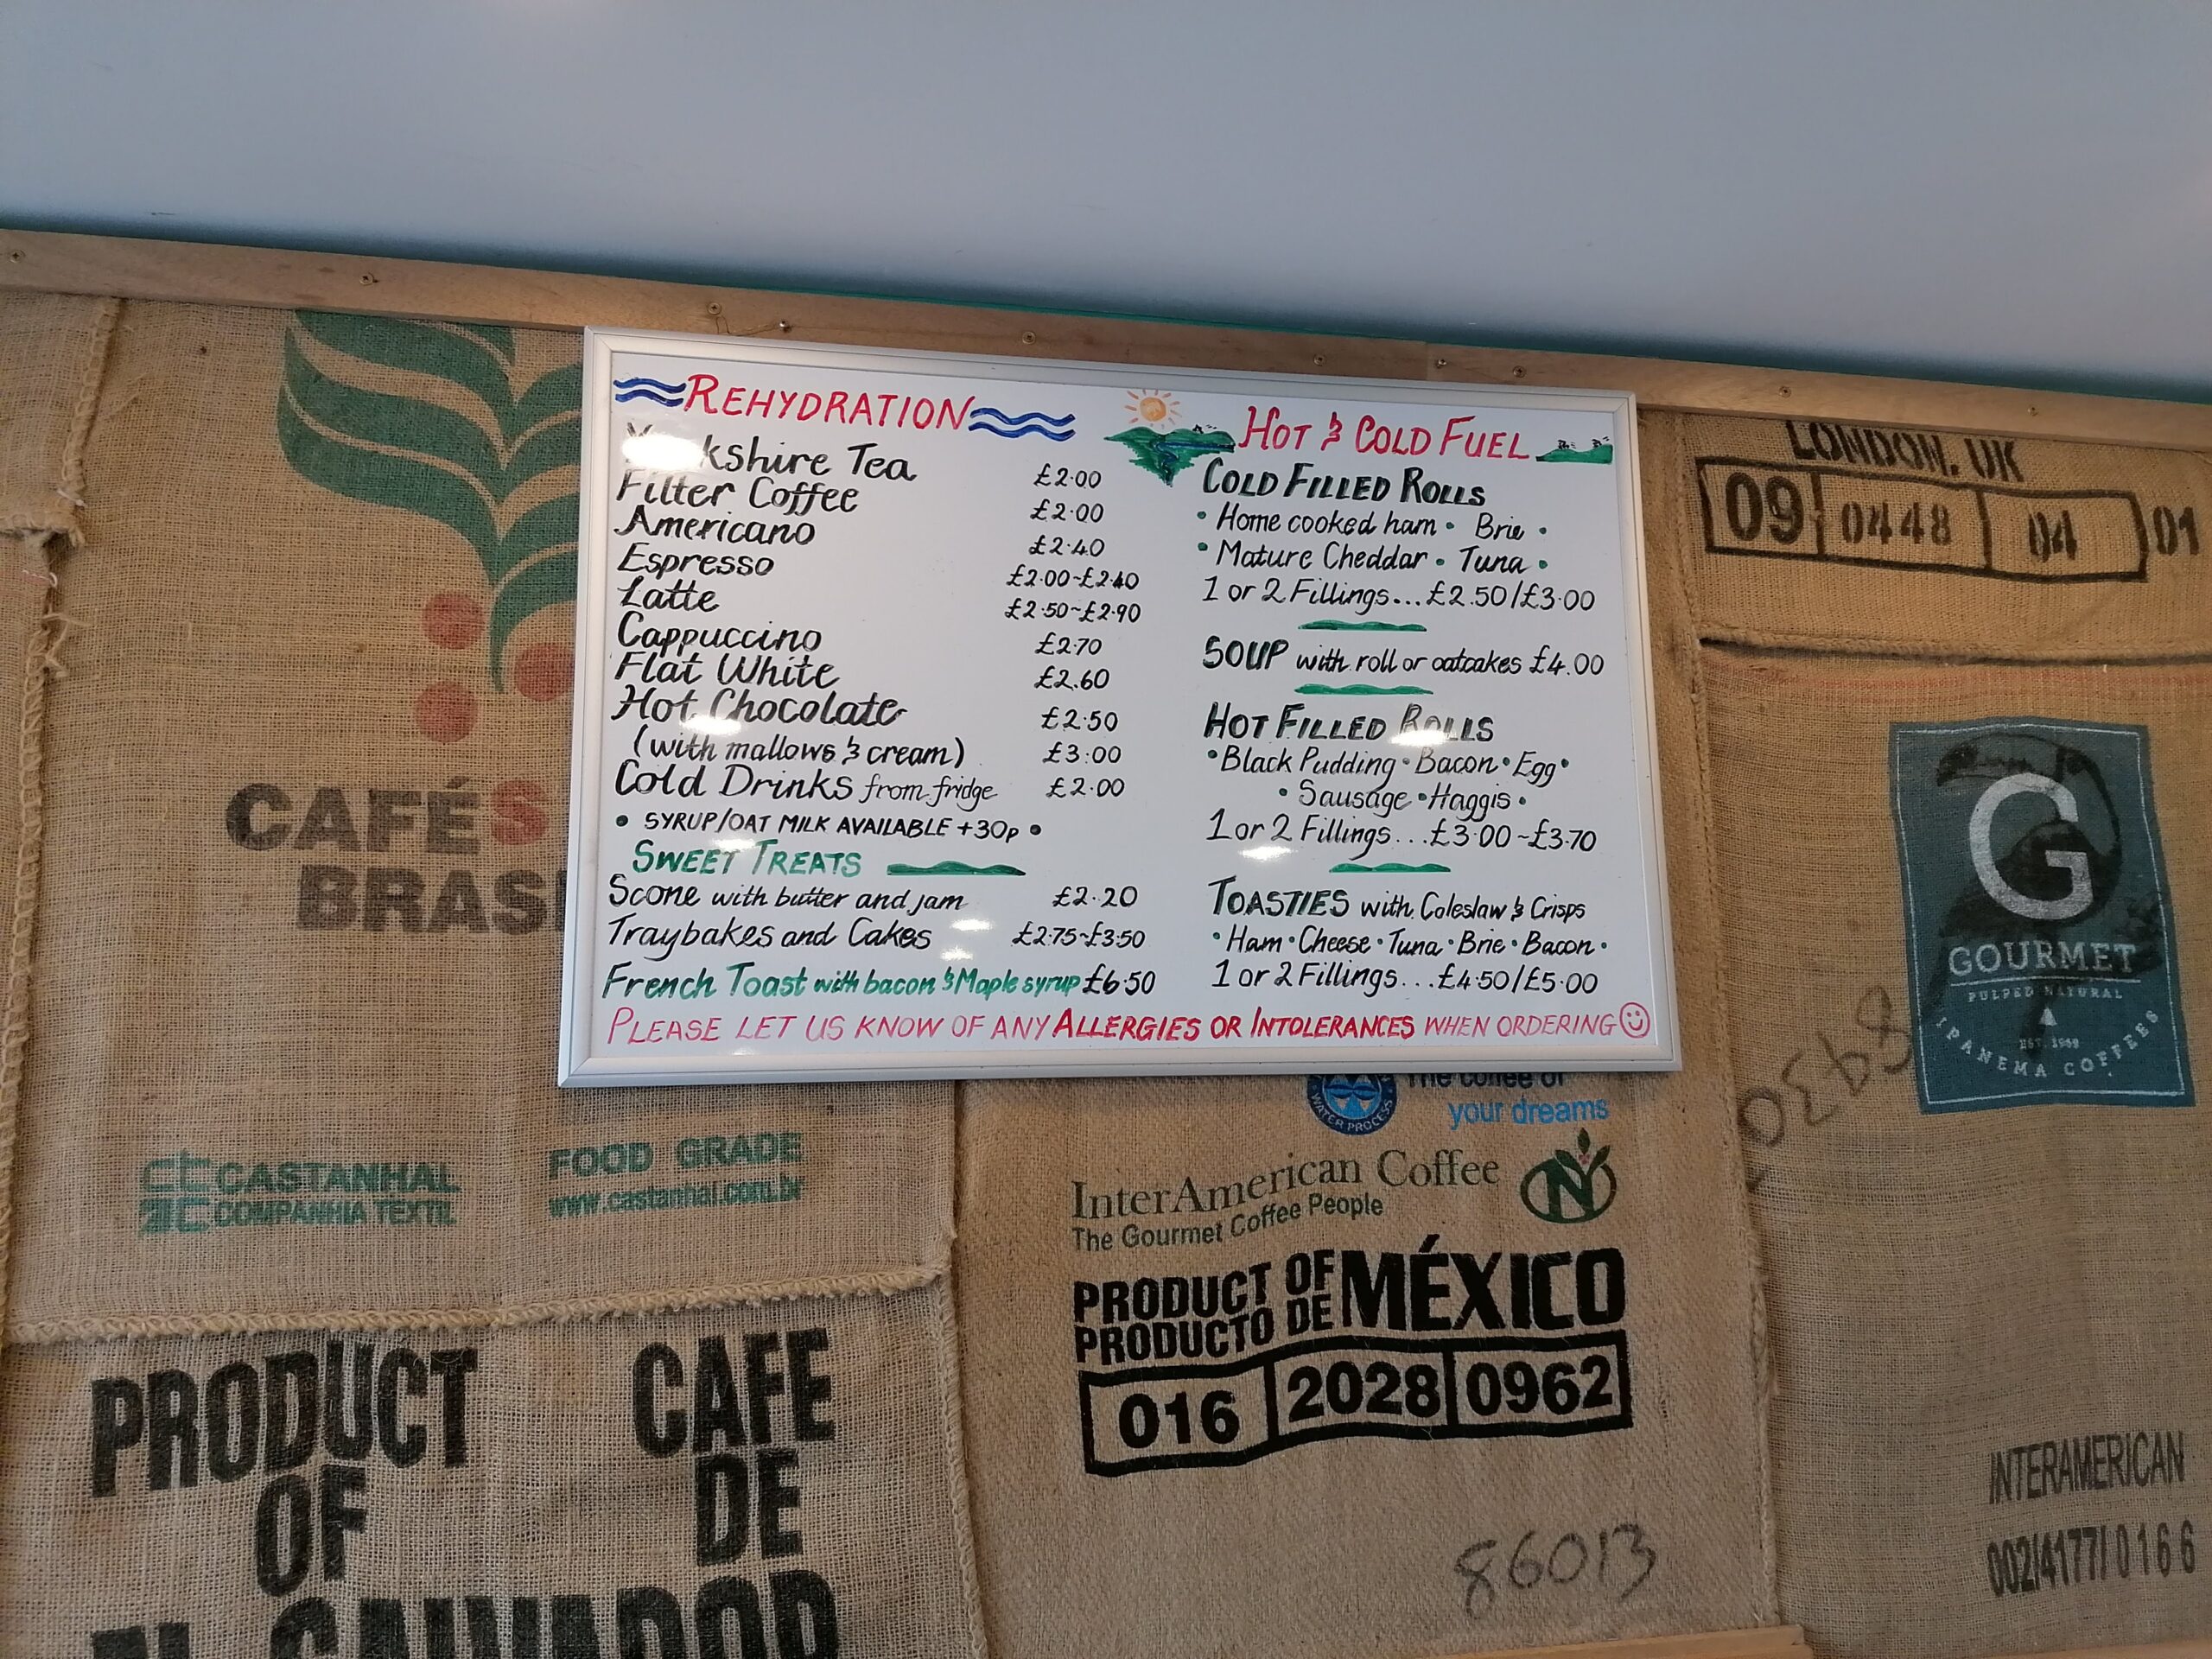 REHYDRATION
Yorkshire Tea £2.00
Filter Coffee £2.00
Americano £2.40
Espresso £2.00~£2.40
Latte £2.50~£2.90
Cappuccino £2.70
Flat White £2.60
Hot Chocolate £2.50
(with mallows & cream) £3.00
Cold Drinks from fridge £2.00
• SYRUP/OAT MILK AVAILABLE +30p •
SWEET TREATS
Scone with butter and jam £2.20
Traybakes and Cakes £2.75~£3.50
French Toast with bacon & Maple syrup £6.50
HOT & COLD FUEL
COLD FILLED ROLLS
• Home cooked ham • Brie •
• Mature Cheddar • Tuna •
1 or 2 Fillings... £2.50/£3.00
SOUP with roll or oatcakes £4.00
HOT FILLED ROLLS
• Black Pudding • Bacon • Egg •
• Sausage • Haggis •
1 or 2 Fillings... £3.00~£3.70
TOASTIES with Coleslaw & Crisps
• Ham • Cheese • Tuna • Brie • Bacon •
1 or 2 Fillings... £4.50/£5.00
PLEASE LET US KNOW OF ANY ALLERGIES OR INTOLERANCES WHEN ORDERING
CAFÉS
BRASI
CASTANHAL
COMPANHIA TEXTIL
FOOD GRADE
www.castanhal.com.br
PRODUCT
OF
EL SALVADOR
CAFE
DE
WATER PROCESS
The coffee of
your dreams
InterAmerican Coffee
The Gourmet Coffee People
PRODUCT OF
PRODUCTO DE
MÉXICO
016 2028 0962
86013
LONDON, UK
09 0448 04 01
G
GOURMET
PULPED NATURAL
EST. 1969
IPANEMA COFFEES
INTERAMERICAN
002/4177/0166